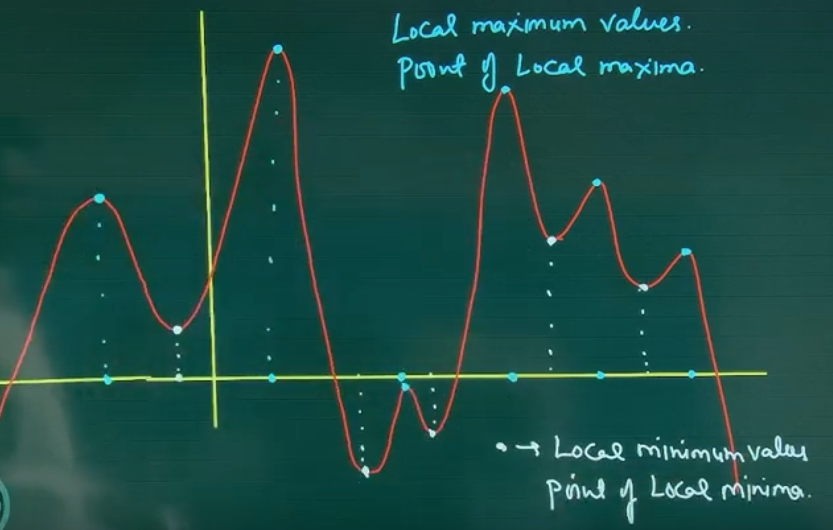 Local maximum values.
Point of Local maxima.
• → Local minimum values
Point of Local minima.